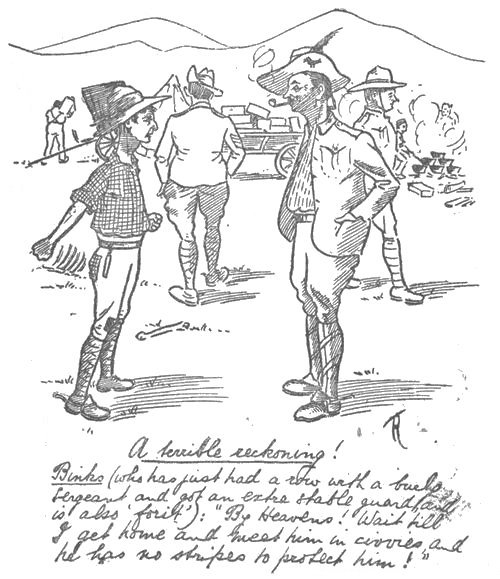 A terrible reckoning!
Binks (who has just had a row with a
sergeant and got an extra stable guard, and
is also "for it"): "By Heavens! Wait till
I get home and meet him in civvies, and
he has no stripes to protect him!"